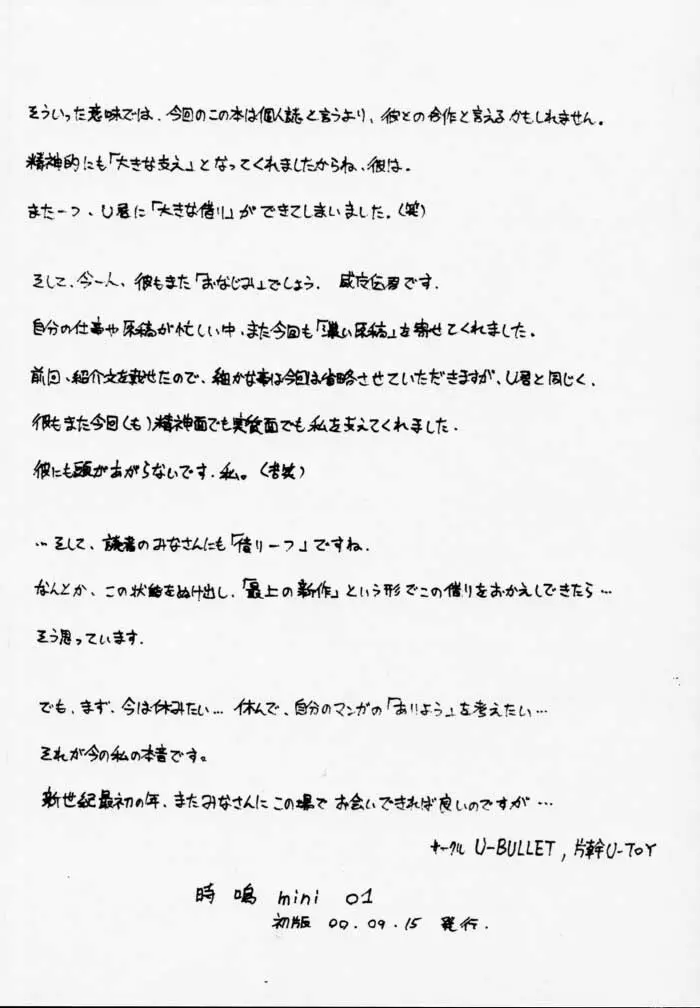 そういった意味では、今回のこの本は個人誌と言うより、彼との合作と言えるかもしれません。
精神的にも「大きな支え」となってくれましたからね、彼は。
また一つ、U君に「大きな借り」ができてしまいました。(笑)
そして、今一人、彼もまた「おなじみ」でしょう。 です.
自分の仕事や原稿が忙しい中、また今回も「濃い原稿」を寄せてくれました。
前回、紹介文を載せたので、細かな事は今回は省略させていただきますが、U君と同じく、
彼もまた今回(も)精神面でも実質面でも私を支えてくれました.
彼にも頭があがらないです.私。(苦笑)
…そして、読者のみなさんにも「借り一つ」ですね.
なんとか、この状態をぬけ出し、「最上の新作」という形でこの借りをおかえしできたら…
そう思っています.
でも、まず、今は休みたい… 休んで、自分のマンガの「ありよう」を考えたい…
それが今の私の本音です。
新世紀最初の年、またみなさんにこの場でお会いできれば良いのですが…
サークル U-BULLET, 片幹U-TOY
時鳴 mini 01
初版 00.09.15 発行.